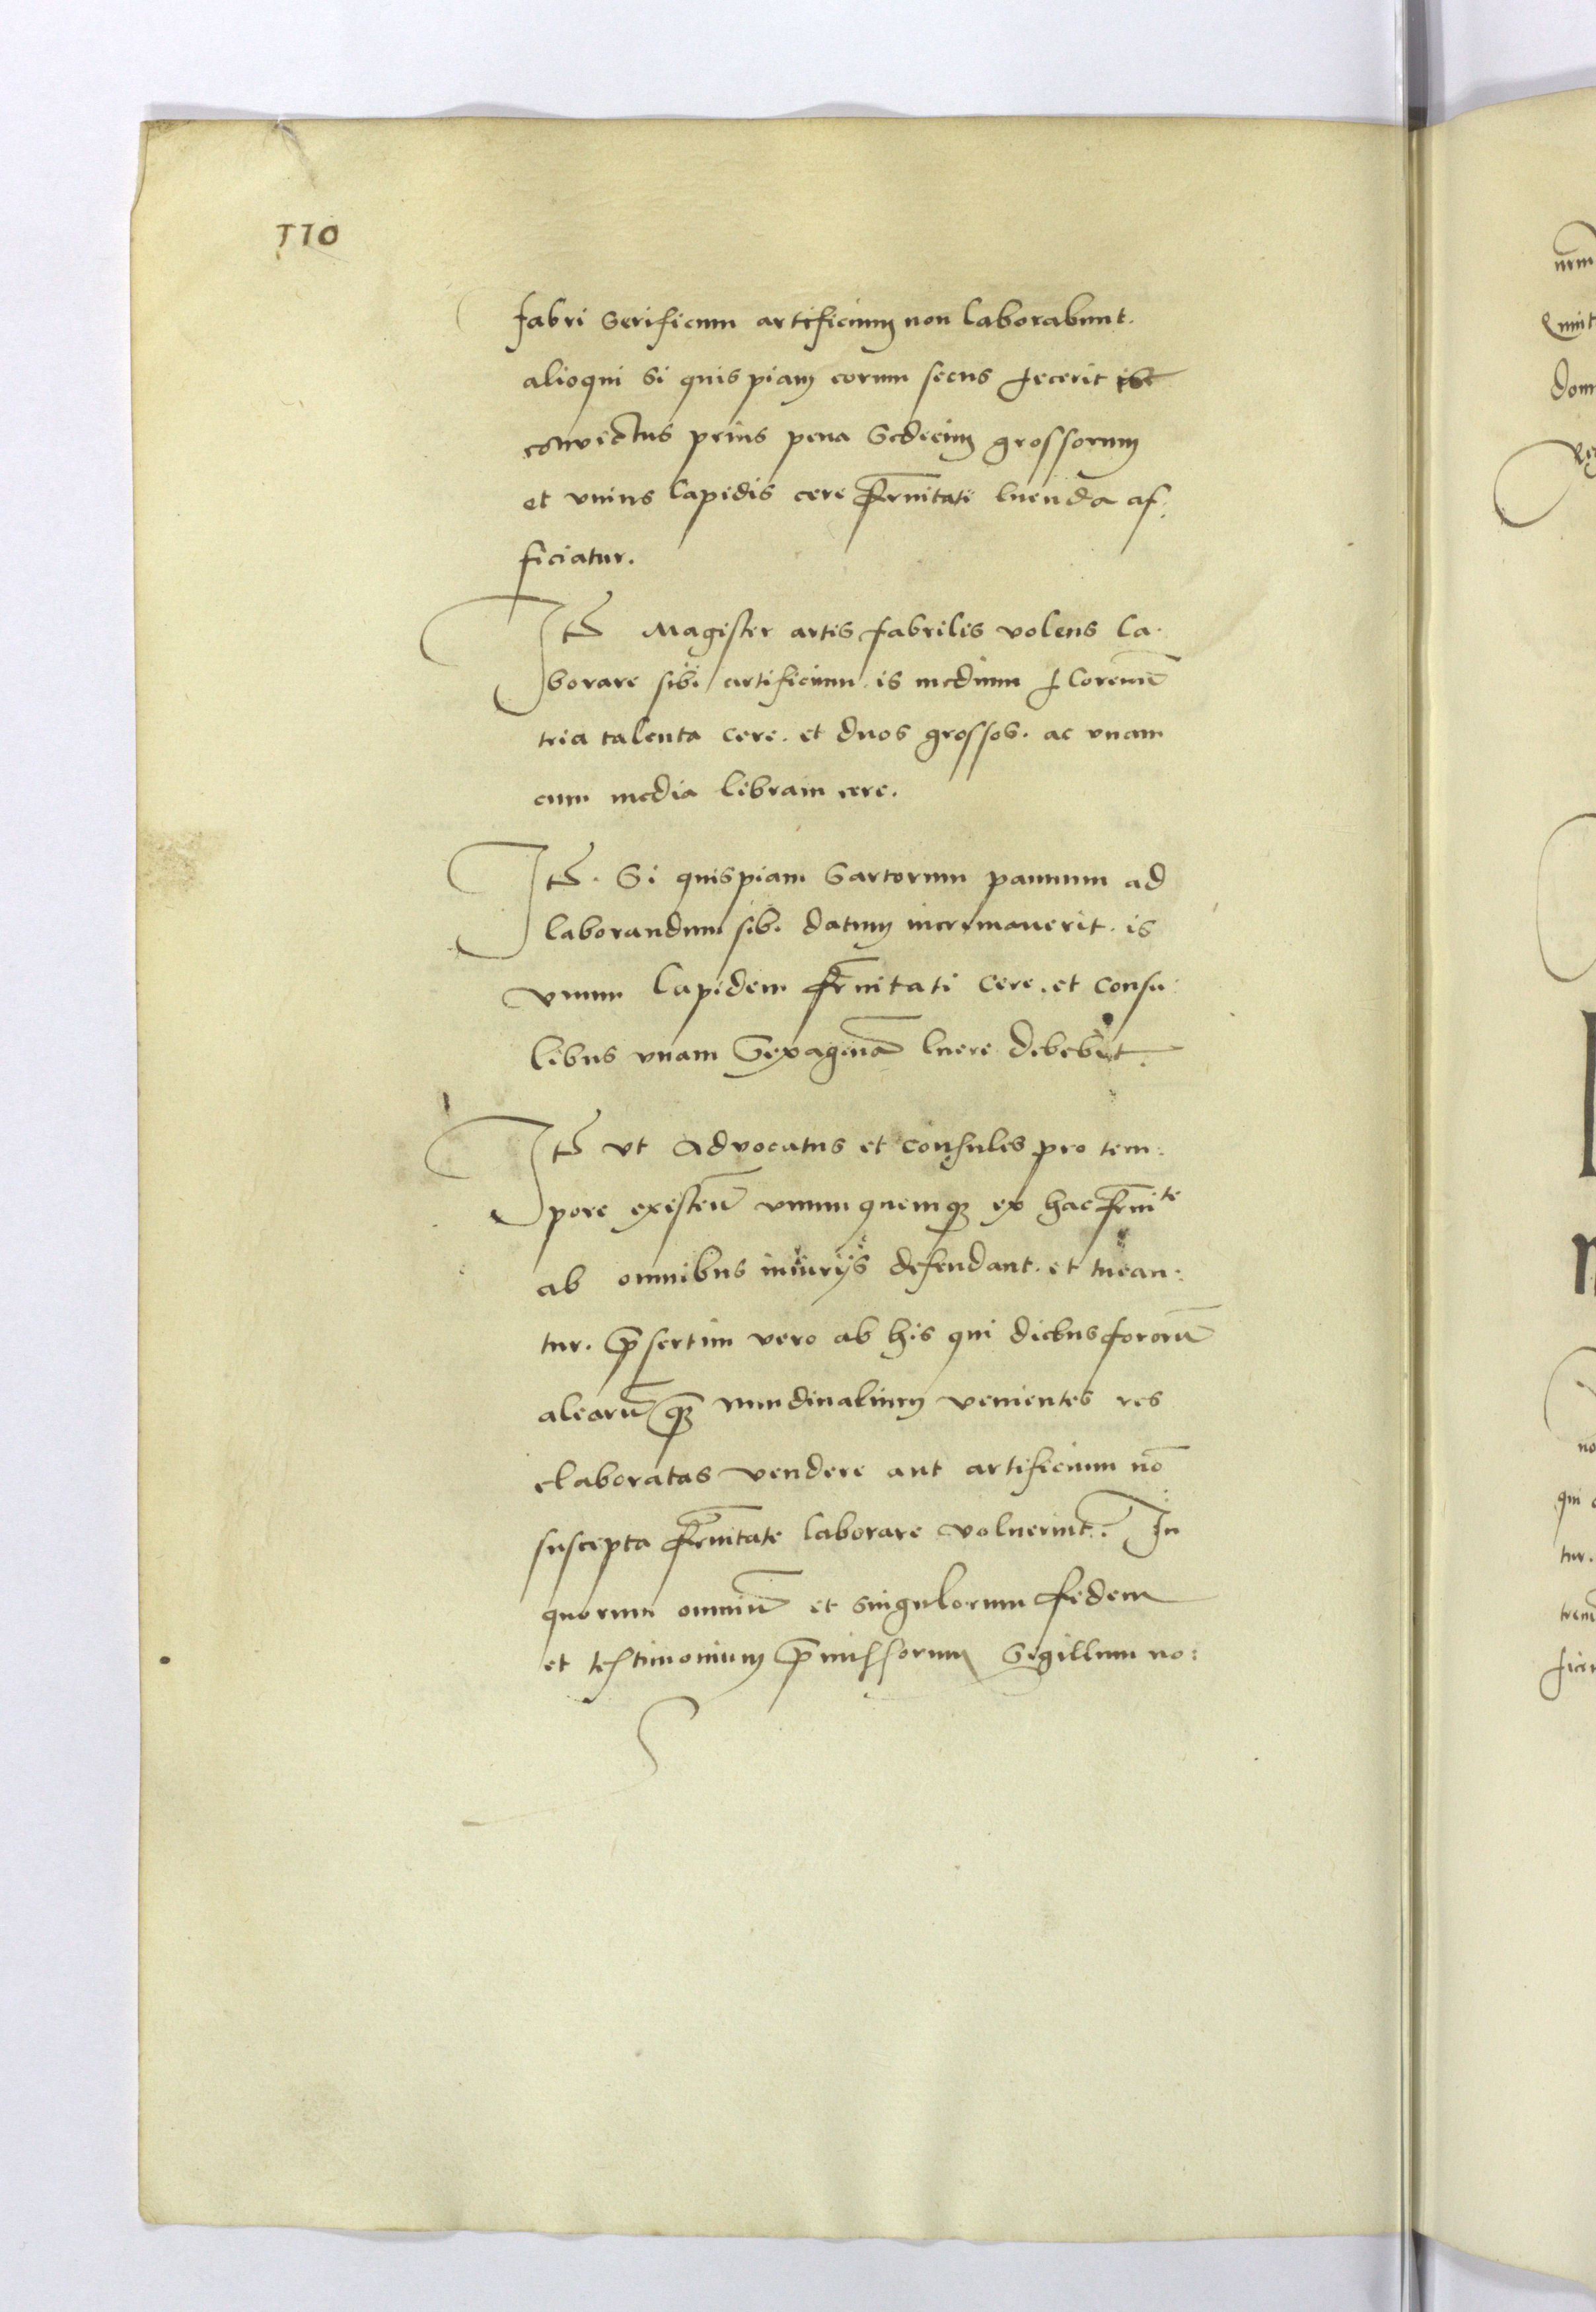 110
fabri serificum artificium non laborabunt.
alioqui si quispiam eorum secus fecerit
convictus prius pena sedecim grossorum
et vnius lapidis cere frnitati luenda af:
ficiatur.
Itē Magister artis fabrilis volens la:
borare sibi artificium. is medium florenū
tria talenta cere. et duos grossos. ac vnam
cum media libram cere.
Itē. Si quispiam Sartorum pannum ad
laborandum sibi datum incremauerit. is
vnum lapidem frnitati cere. et consu:
libus vnam Sexagenā luere debebit.
Itē vt Advocatus et consules pro tem:
pore existeñ vnumquemqȝ ex hac frnite
ab omnibus iniurijs defendant. et tuean:
tur. p̄sertim vero ab his qui diebus fororū
alearū qȝ nundinalium venientes res
elaboratas vendere aut artificium nō
suscepta frnitate laborare voluerint. In
quorum omniū et singulorum fidem
et testimonium p̄missorum Sigillum no: